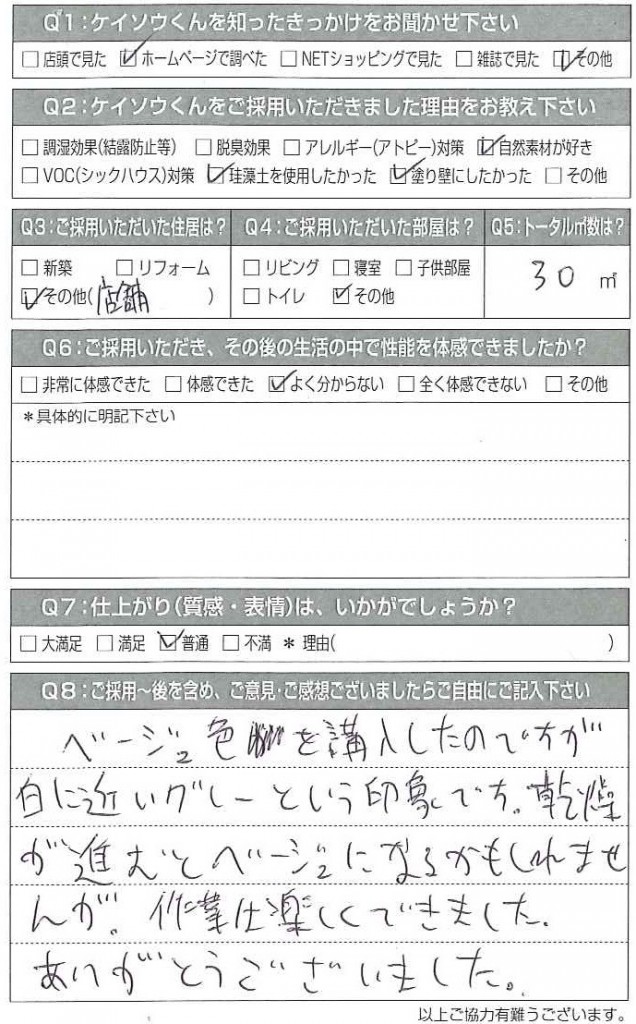 Q1:ケイソウくんを知ったきっかけをお聞かせ下さい
□店頭で見た ☑ホームページで調べた □NETショッピングで見た □雑誌で見た ☑その他
Q2:ケイソウくんをご採用いただきました理由をお教え下さい
□調湿効果(結露防止等) □脱臭効果 □アレルギー(アトピー)対策 ☑自然素材が好き
□VOC(シックハウス)対策 ☑珪藻土を使用したかった ☑塗り壁にしたかった □その他
Q3:ご採用いただいた住居は? Q4:ご採用いただいた部屋は? Q5:トータル㎡数は?
□新築 □リフォーム □リビング □寝室 □子供部屋 30 ㎡
☑その他(店舗 ) □トイレ ☑その他
Q6:ご採用いただき、その後の生活の中で性能を体感できましたか?
□非常に体感できた □体感できた ☑よく分からない □全く体感できない □その他
*具体的に明記下さい
Q7:仕上がり(質感・表情)は、いかがでしょうか?
□大満足 □満足 ☑普通 □不満 *理由( )
Q8:ご採用~後を含め、ご意見・ご感想ございましたらご自由にご記入下さい
ベージュ色を購入したのですが
白に近いグレーという印象です。乾燥
が進むとベージュになるかもしれませ
んが。作業は楽しくできました.
ありがとうございました。
以上ご協力有難うございます。